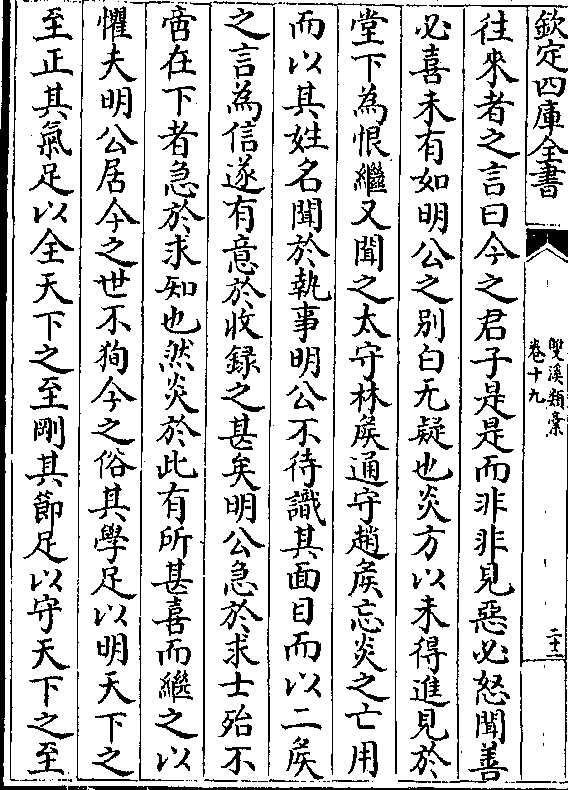 欽定四庫全書
雙溪類稾
卷十九
二十二
往來者之言曰今之君子是是而非非見惡必怒聞善
必喜未有如明公之别白无疑也炎方以未得進見於
堂下為恨繼又聞之太守林矦通守趙矦忘炎之亡用
而以其姓名聞於執事明公不待識其面目而以二矦
之言為信遂有意於收録之甚矣明公急於求士殆不
啻在下者急於求知也然炎於此有所甚喜而繼之以
懼夫明公居今之世不狥今之俗其學足以明天下之
至正其氣足以全天下之至剛其節足以守天下之至